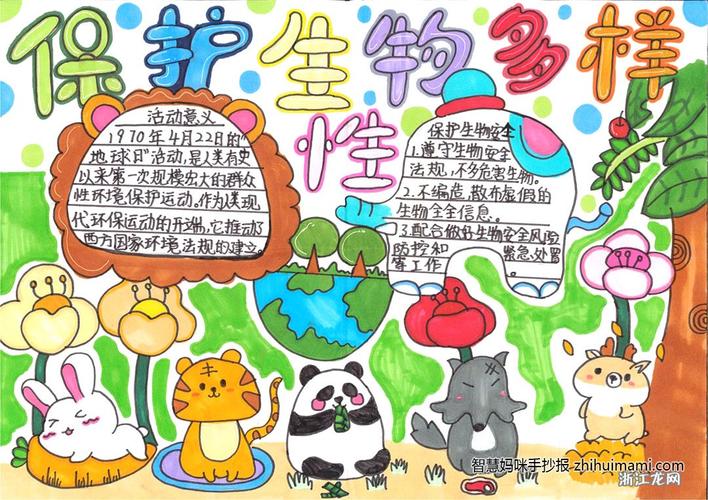 保护生物多样
性
活动意义
1970年4月22日的"
地球日"活动,是人类有史
以来第一次规模宏大的群众
性环境保护运动。作为美现
代环保运动的开端,它推动
西方国家环境法规的建立。
保护生物安全
1.遵守生物安全
法规,不多危害生物。
2.不编造、散布虚假的
生物全全信息。
3.配合做好生物安全风险
防控知紧急处置
等工作
智慧妈咪手抄报-zhihuimami.com
浙江龙网